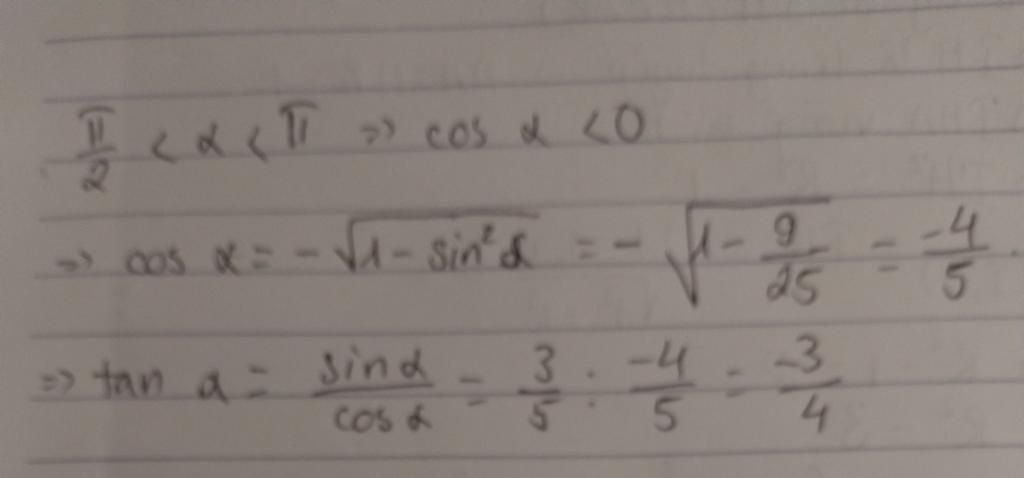 π/2 < α < π => cos α < 0
=> cos α = - √(1 - sin²α) = - √(1 - 9/25) = -4/5.
=> tan α = sinα/cosα = 3/5 : -4/5 = -3/4